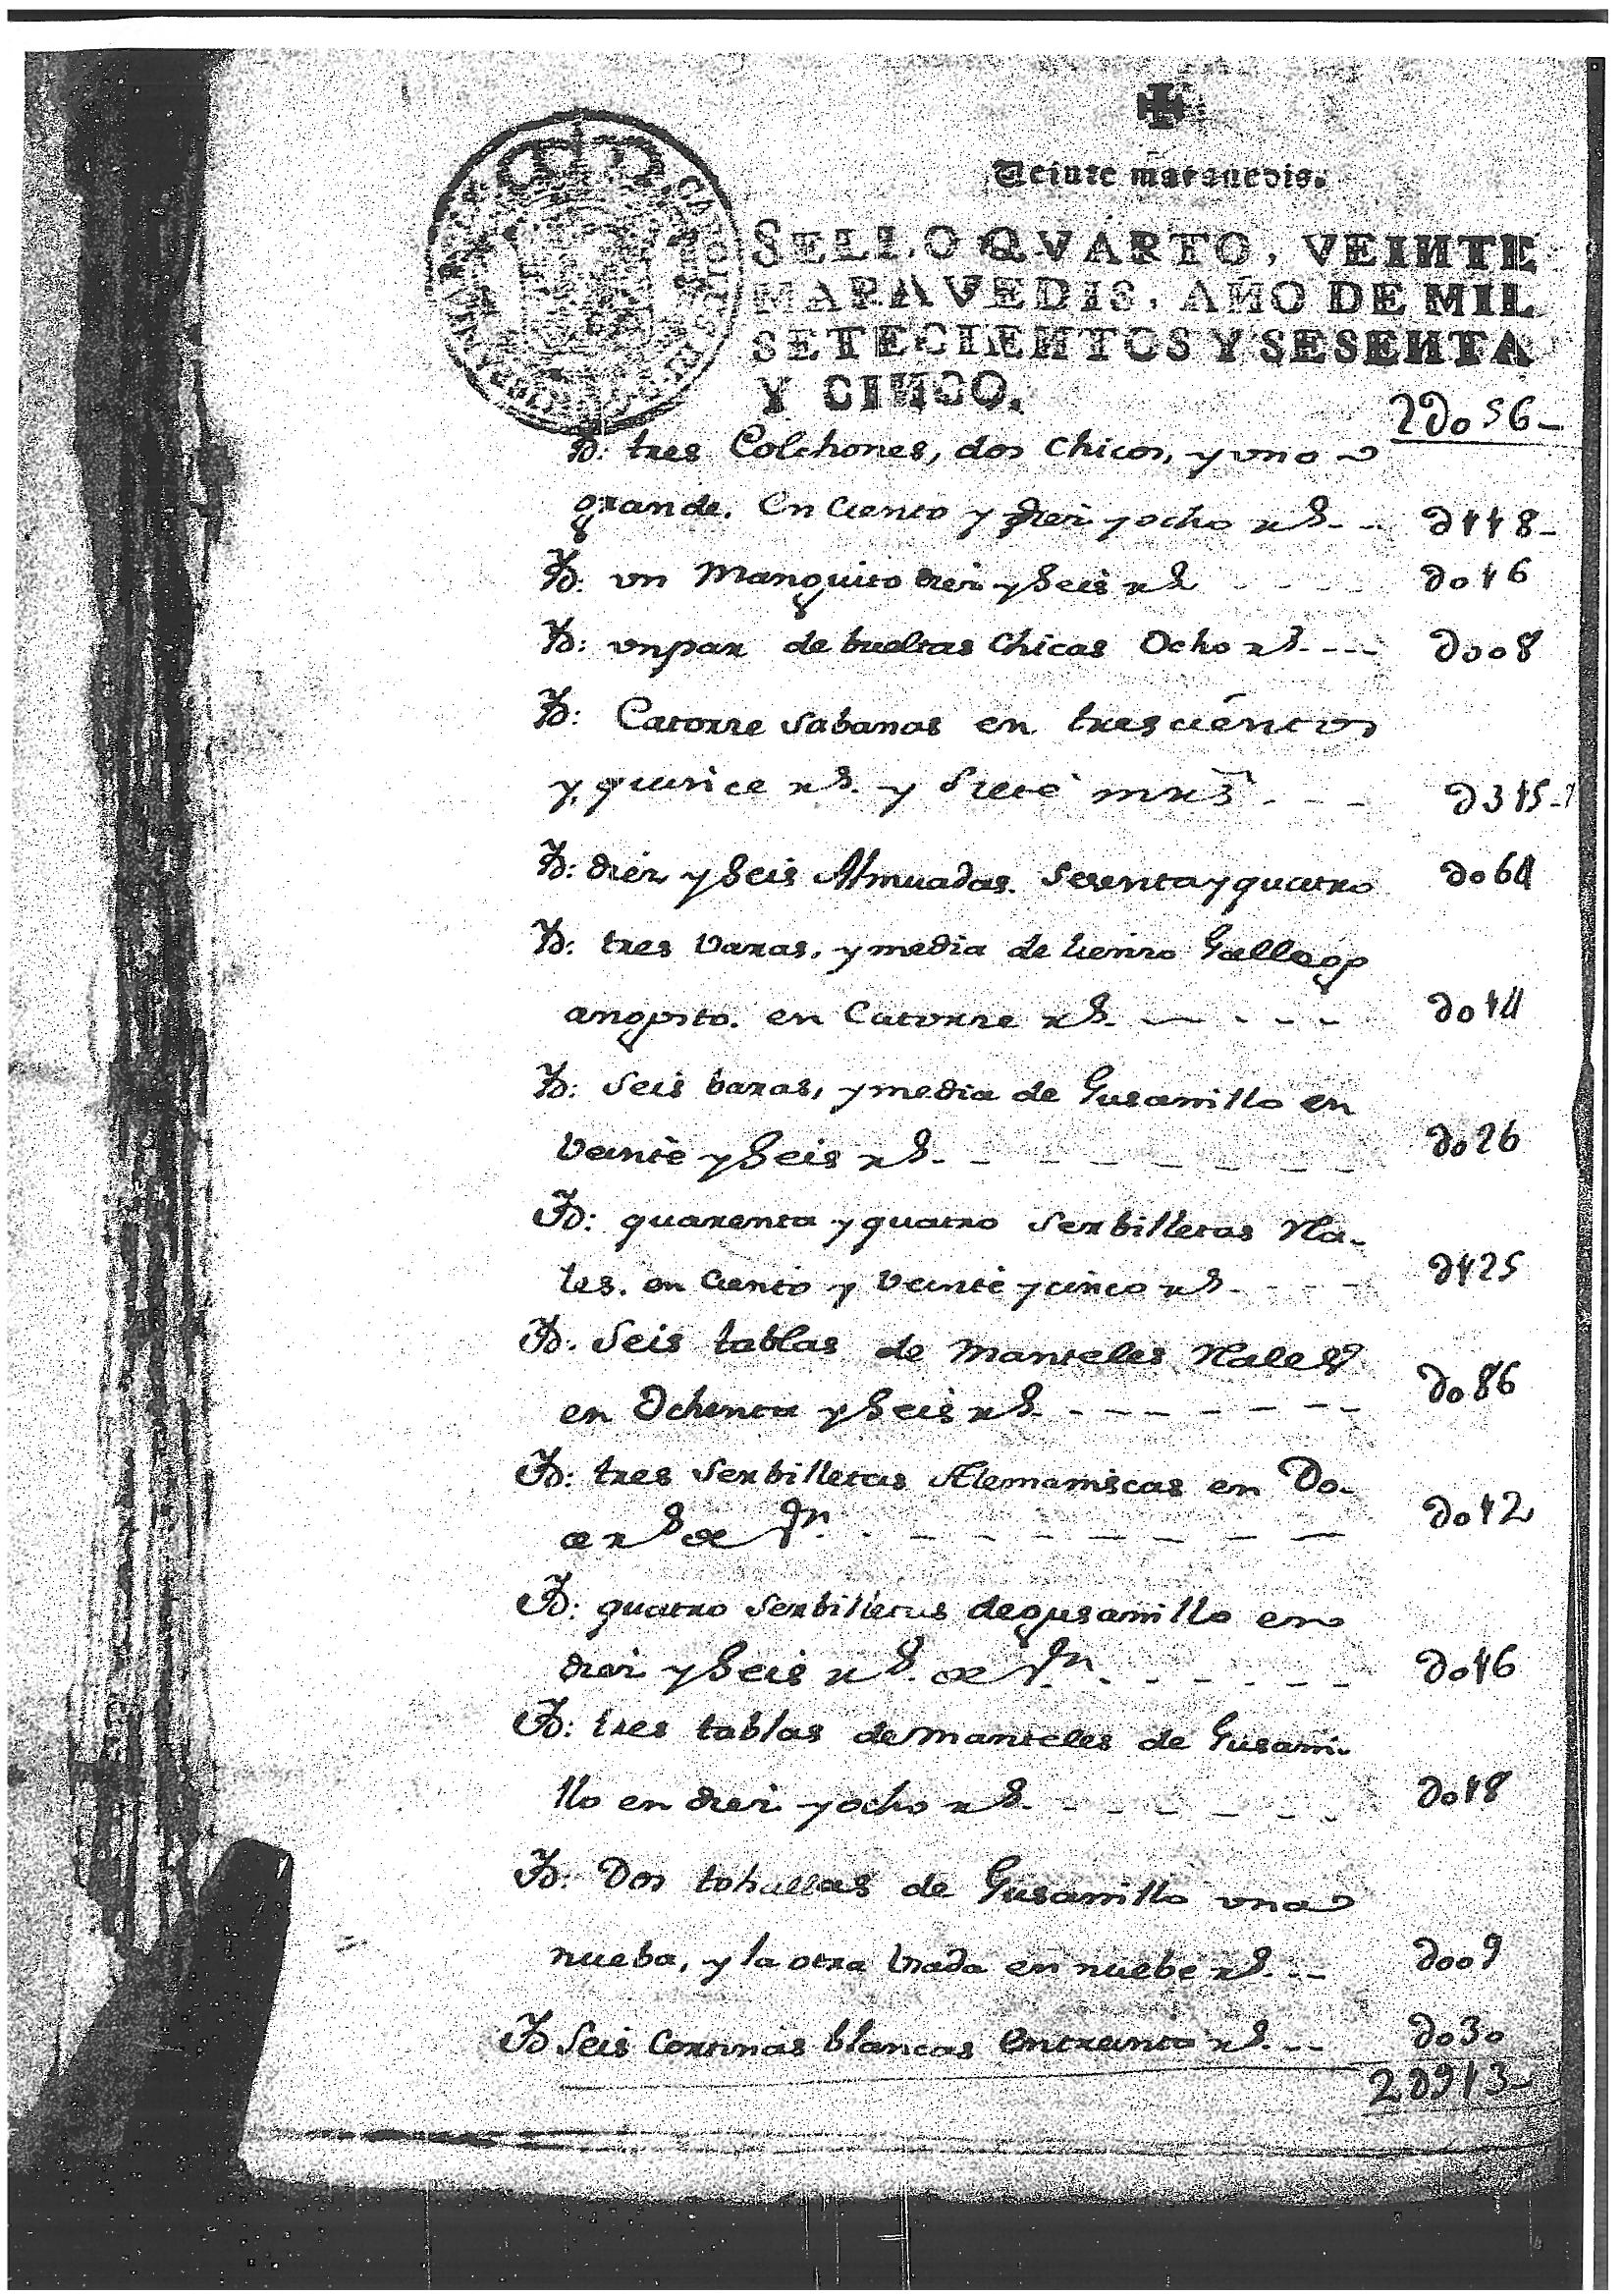 Veinte marauedis.
SELLO QVARTO, VEINTE
MARAVEDIS, AÑO DE MIL
SETECIENTOS Y SESENTA
Y CINCO.
2do56-
Yd: tres Colchones, dos chicos, y vno
grande. En Ciento y diez y ocho rs. -- d118-
Yd: vn Manguito diez y Seis rs ---- do16
Yd: vn par de bueltas Chicas Ocho rs. --- doo8
Yd: Catorze Sabanas en trescientos
y, quinze rs. y Siete mrs --- d315-7
Yd: diez y Seis Almuadas. Sesenta y quatro do64
Yd: tres Varas, y media de lienzo Gallego
angosto. en Catorze rs. ----- do14
Yd: Seis baras, y media de Gusanillo en
Veinte y Seis rs. -------- do26
Yd: quarenta y quatro Serbilletas Rea-
les. en Ciento y Veinte y cinco rs. --- d125
Yd. Seis tablas de Manteles Reales
en Ochenta y Seis rs. ------- do86
Yd: tres Serbilletas Alemaniscas en Do-
ce rs de vn. -------- do12
Yd: quatro Serbilletas de gusanillo en
diez y Seis rs. de vn. ------ do16
Yd: tres tablas de manteles de Gusani-
llo en diez y ocho rs. ------ do18
Yd: Dos tohallas de Gusanillo vna
nueba, y la otra Vsada en nuebe rs. --- doo9
Yd Seis Cortinas blancas en treinta rs. --- do30
2d913-